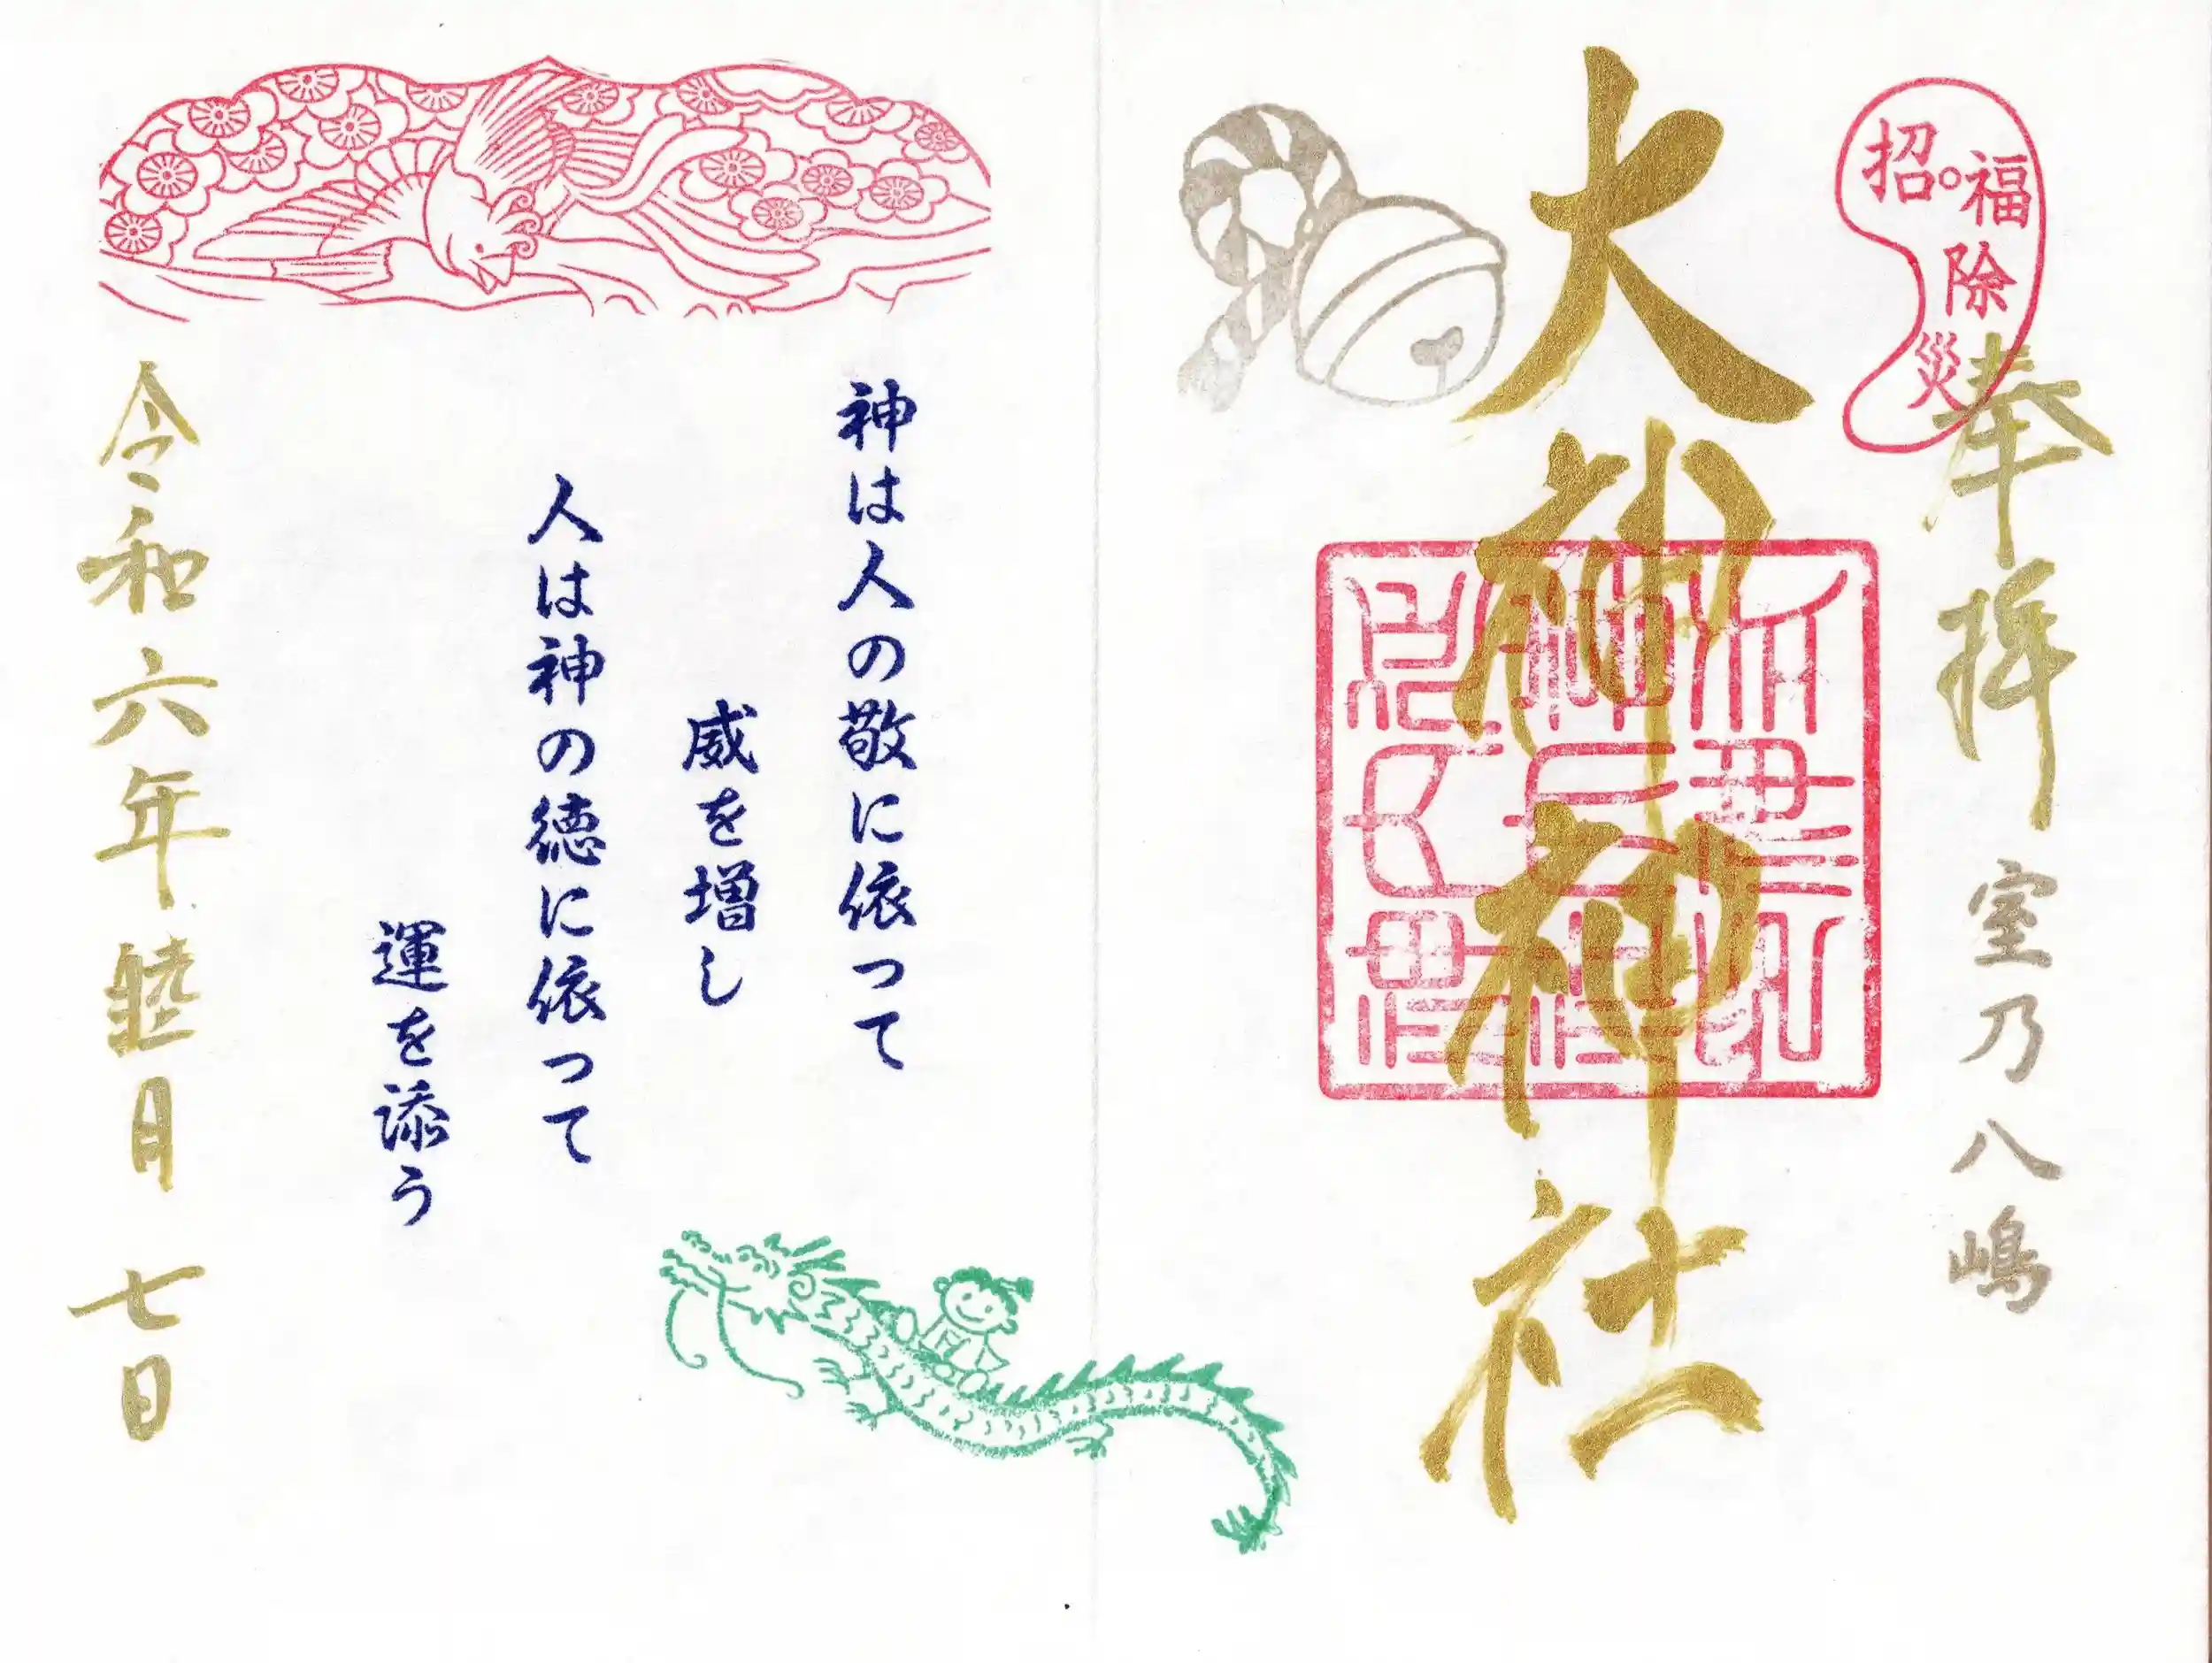 招福除災
奉拝
室乃八嶋
大神神社
神は人の敬に依って
威を増し
人は神の徳に依って
運を添う
令和六年睦月七日